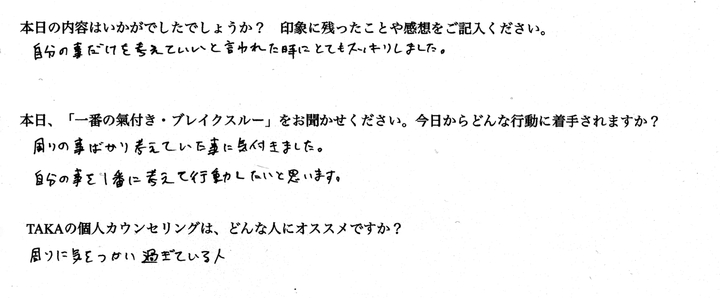 本日の内容はいかがでしたでしょうか？　印象に残ったことや感想をご記入ください。
自分の事だけを考えていいと言われた時にとてもスッキリしました。
本日、「一番の氣付き・ブレイクスルー」をお聞かせください。今日からどんな行動に着手されますか？
周りの事ばかり考えていた事に気付きました。
自分の事を1番に考えて行動したいと思います。
TAKAの個人カウンセリングは、どんな人にオススメですか？
周りに気をつかい過ぎている人